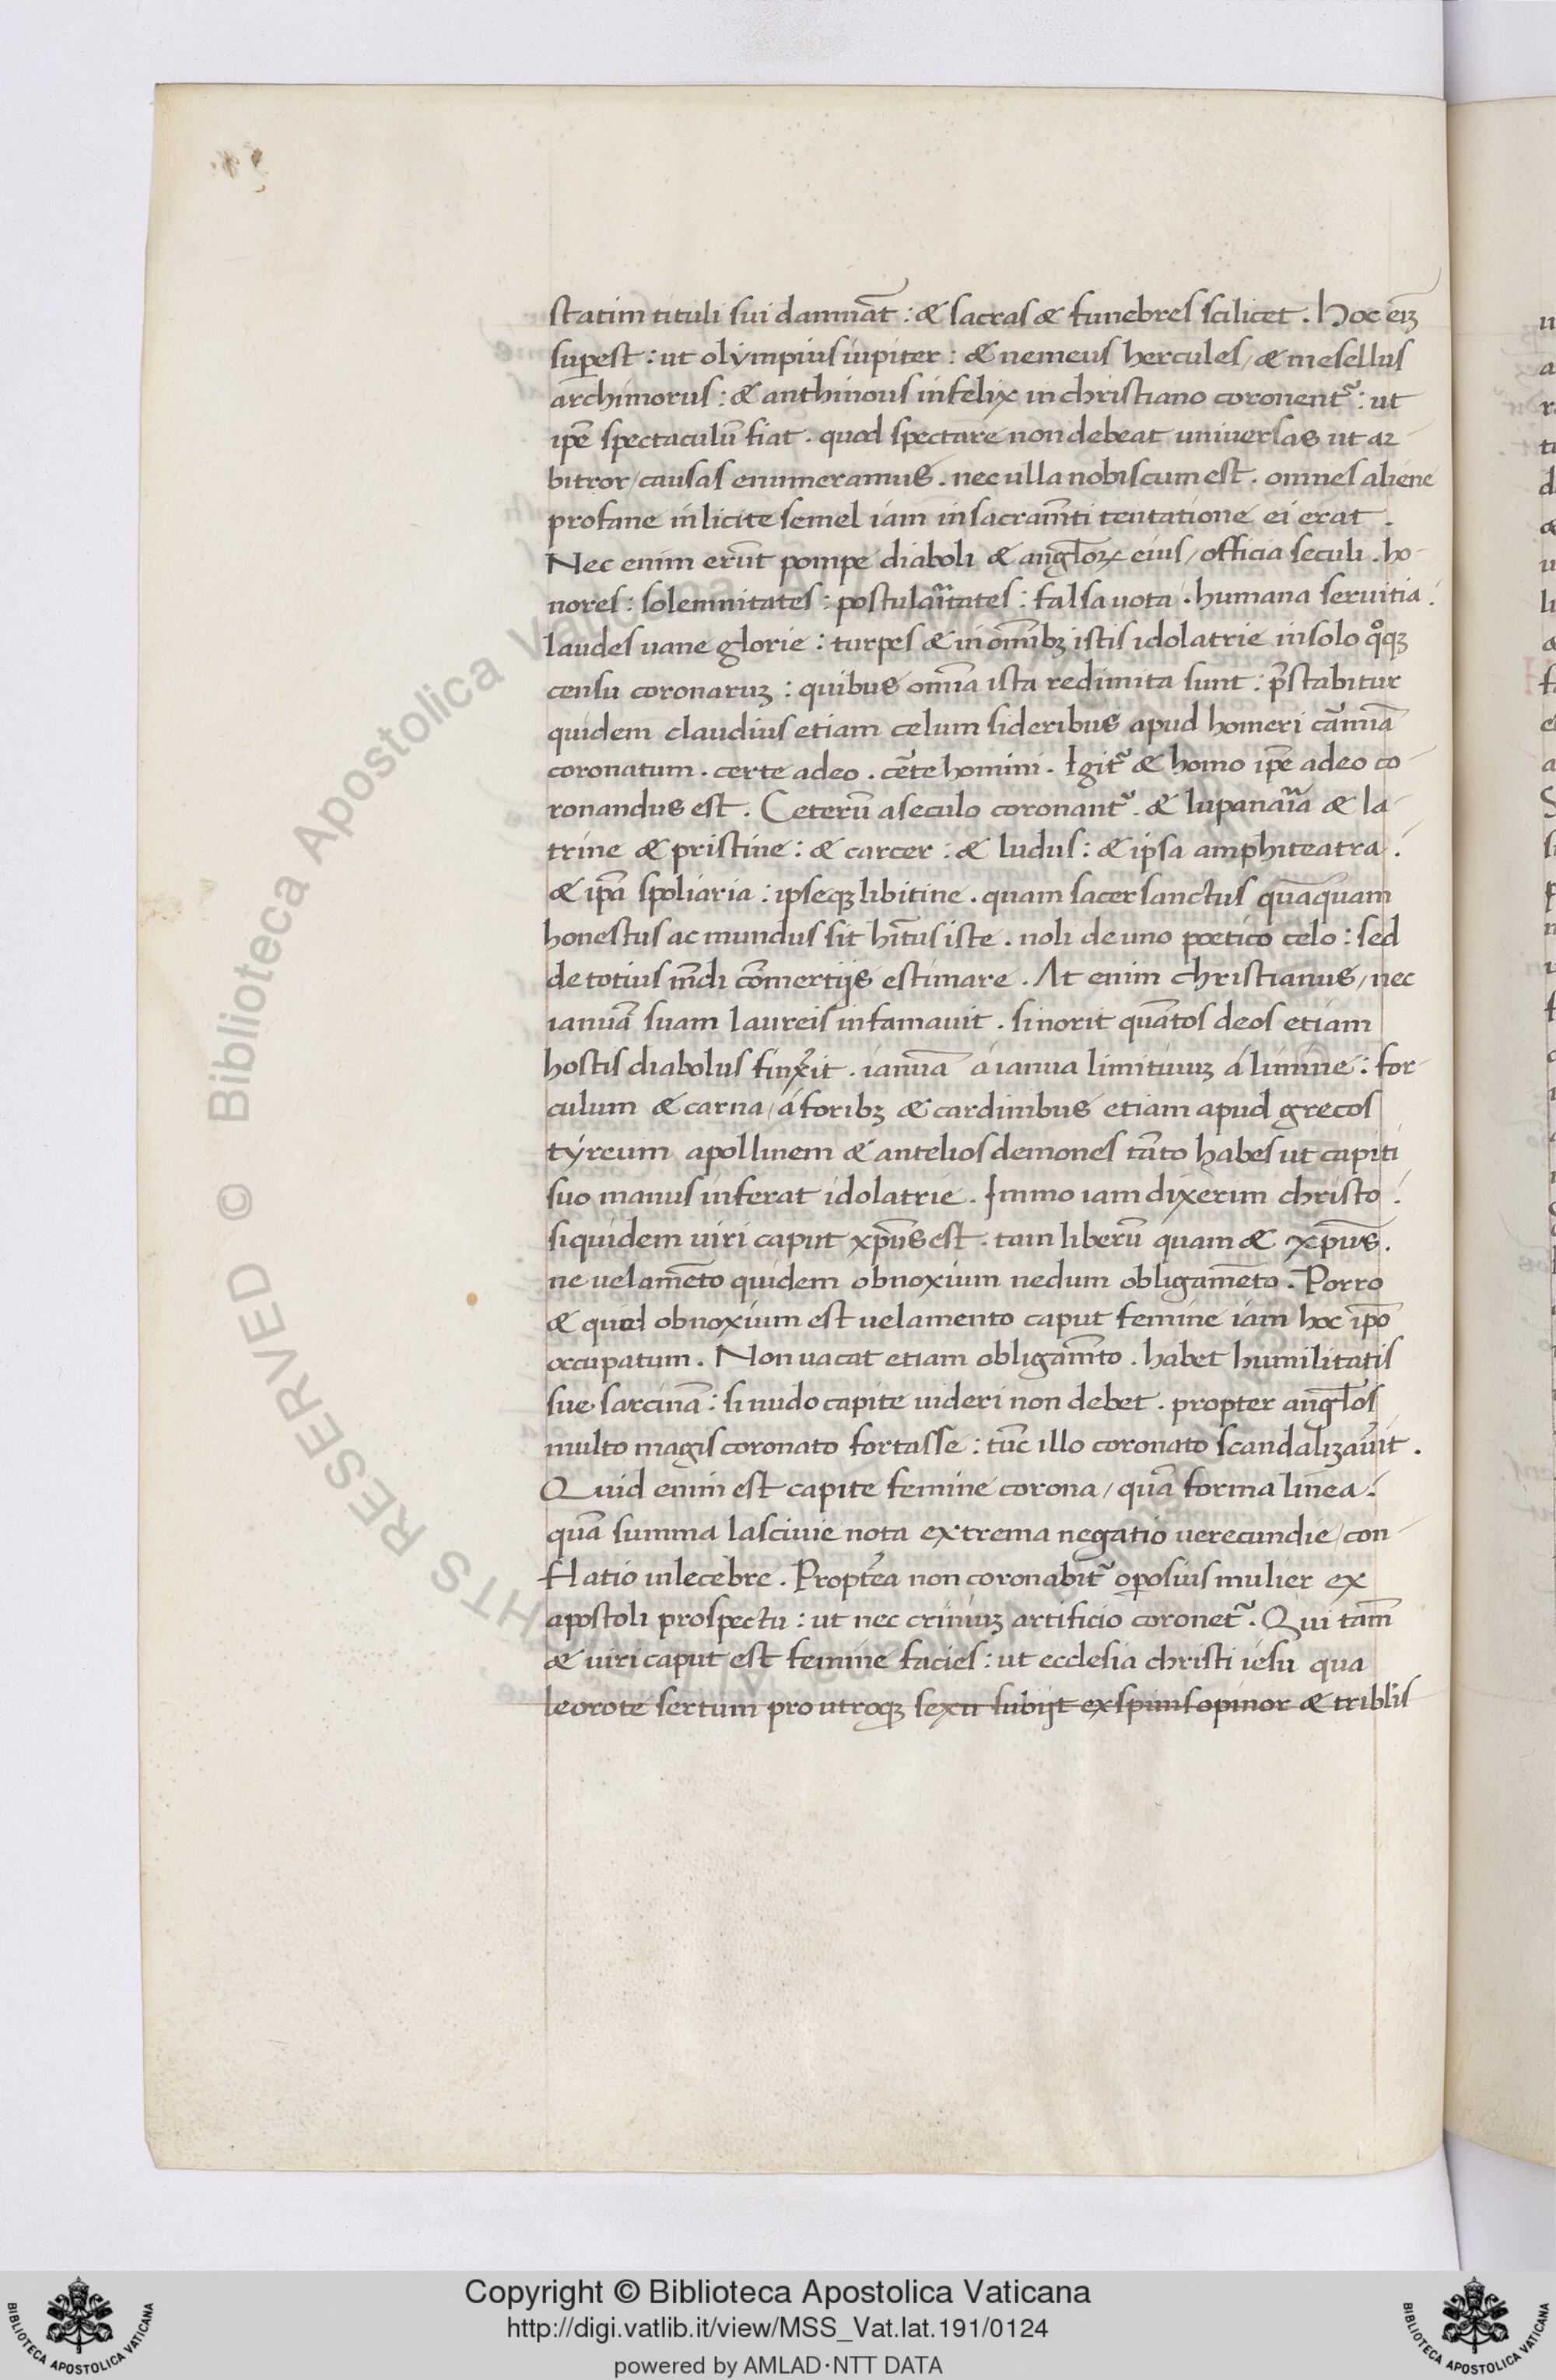 statim tituli sui damnāt : & sacras & funebres scilicet . Hoc eīʒ
suꝑest : ut olympius iupiter : & nemeus hercules / & mesellus
archimorus : & anthinous infelix in christiano coronent᷑ : ut
ip̄e spectaculū fiat . quod spectare non debeat universas ut ar-
bitror / causas enumeramus . nec ulla nobiscum est . omnes aliene
profane inlicite semel iam in sacram̄ti tentatione ei erat .
Nec enim erūt pompe diaboli & angl̄oꝝ eius / officia seculi . ho-
nores : solemnitates : postulaītates : falsa vota . humana seruitia .
laudes uane glorie : turpes & in om̄ibꝫ istis idolatrie in solo qͦqꝫ
censu coronaruꝫ : quibus om̄ia ista redimita sunt : p̄stabitur
quidem claudius etiam celum sideribus apud homeri cāmīa
coronatum . certe adeo . cēte homini . Igit᷑ & homo ip̄e adeo co-
ronandus est . Ceterū a seculo coronant᷑ . & lupanaīa & la-
trine & pristine : & carcer : & ludus : & ipsa amphiteatra .
& ip̄a spoliaria : ipseqꝫ libitine . quam sacer sanctus quāquam
honestus ac mundus sit hītus iste . noli de uno poetico celo : sed
de totius mūdi cōmertijs estimare . At enim christianus / nec
ianuā suam laureis infamauit . si norit quātos deos etiam
hostis diabolus finx̄it . ianuā a ianua limitiuuꝫ á limine : for-
culum & carna / á foribꝫ & cardinibus etiam apud grecos
tyreum apollinem & antelios demones tāto habes ut capiti
suo manus inferat idolatrie . Immo iam dixerim christo .
siquidem uiri caput xp̄us est . tam liberū quam & xp̄us .
ne velamēto quidem obnoxium nedum obligamēto . Porro
& quod obnoxium est uelamento caput femine iam hoc ip̄o
occupatum . Non uacat etiam obligam̄to . habet humilitatis
sue sarcinā : si nudo capite uideri non debet . propter angl̄os
multo magis coronato fortasse : tūc illo coronato scandalizau̅it .
Quid enim est capite femine corona / quā forma linea .
quā summa lasciuie nota extrema negatio uerecundie / con-
flatio inlecebre . Propt̄ea non coronabit᷑ oꝑosius mulier ex
apostoli prospectu : ut nec crinuꝫ artificio coronet᷑ . Qui tam̄
& uiri caput est femine facies : ut ecclesia christi iesu qua
leorote sertum pro utroqꝫ sexu subijt ex spinis opinor & tribl̄is
Copyright © Biblioteca Apostolica Vaticana
http://digi.vatlib.it/view/MSS_Vat.lat.191/0124
powered by AMLAD·NTT DATA